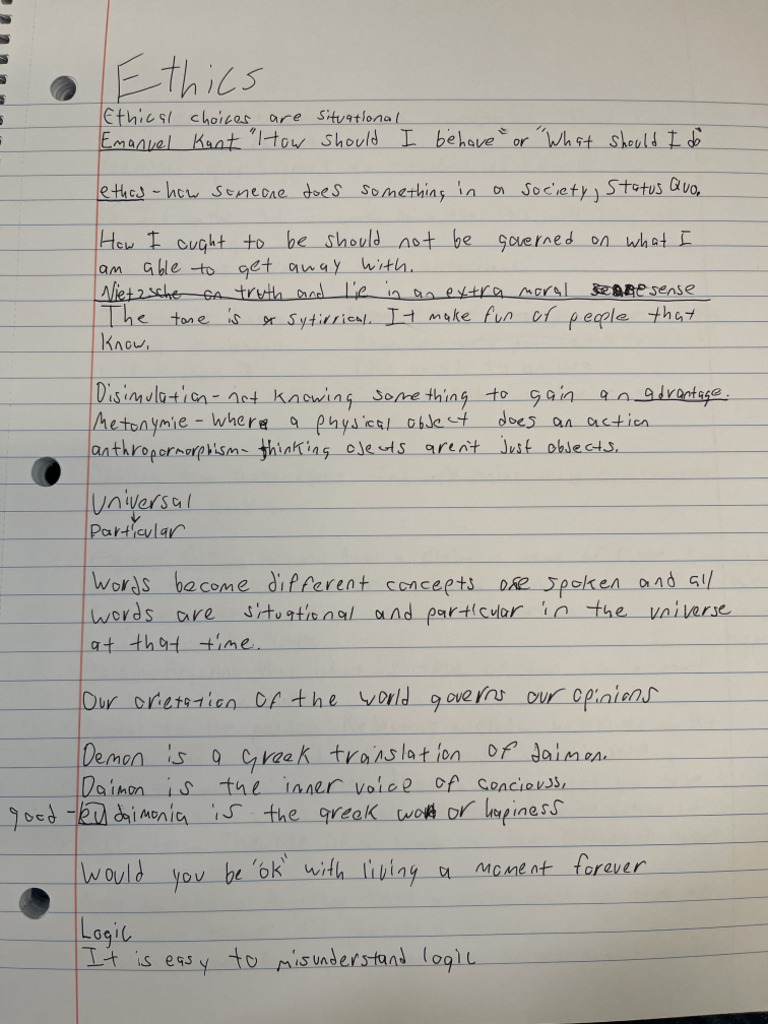 Ethics
Ethical choices are situational
Emanuel Kant "How should I behave" or "What should I do"
ethos - how someone does something in a society, Status Quo.
How I ought to be should not be governed on what I
am able to get away with.
Nietzsche on truth and lie in an extra moral sense
The tone is sytirrical. It make fun of people that
know.
Disimulation - not knowing something to gain an advantage.
Metonymie - where a physical object does an action
anthropormorphism - thinking ojects aren't just objects.
Universal
↓
Particular
Words become different concepts once spoken and all
words are situational and particular in the universe
at that time.
Our orietation of the world governs our opinions
Demon is a Greek translation of daimon.
Daimon is the inner voice of conciouss.
good - eu daimonia is the greek word or hapiness
Would you be "ok" with living a moment forever
Logic
It is easy to misunderstand logic